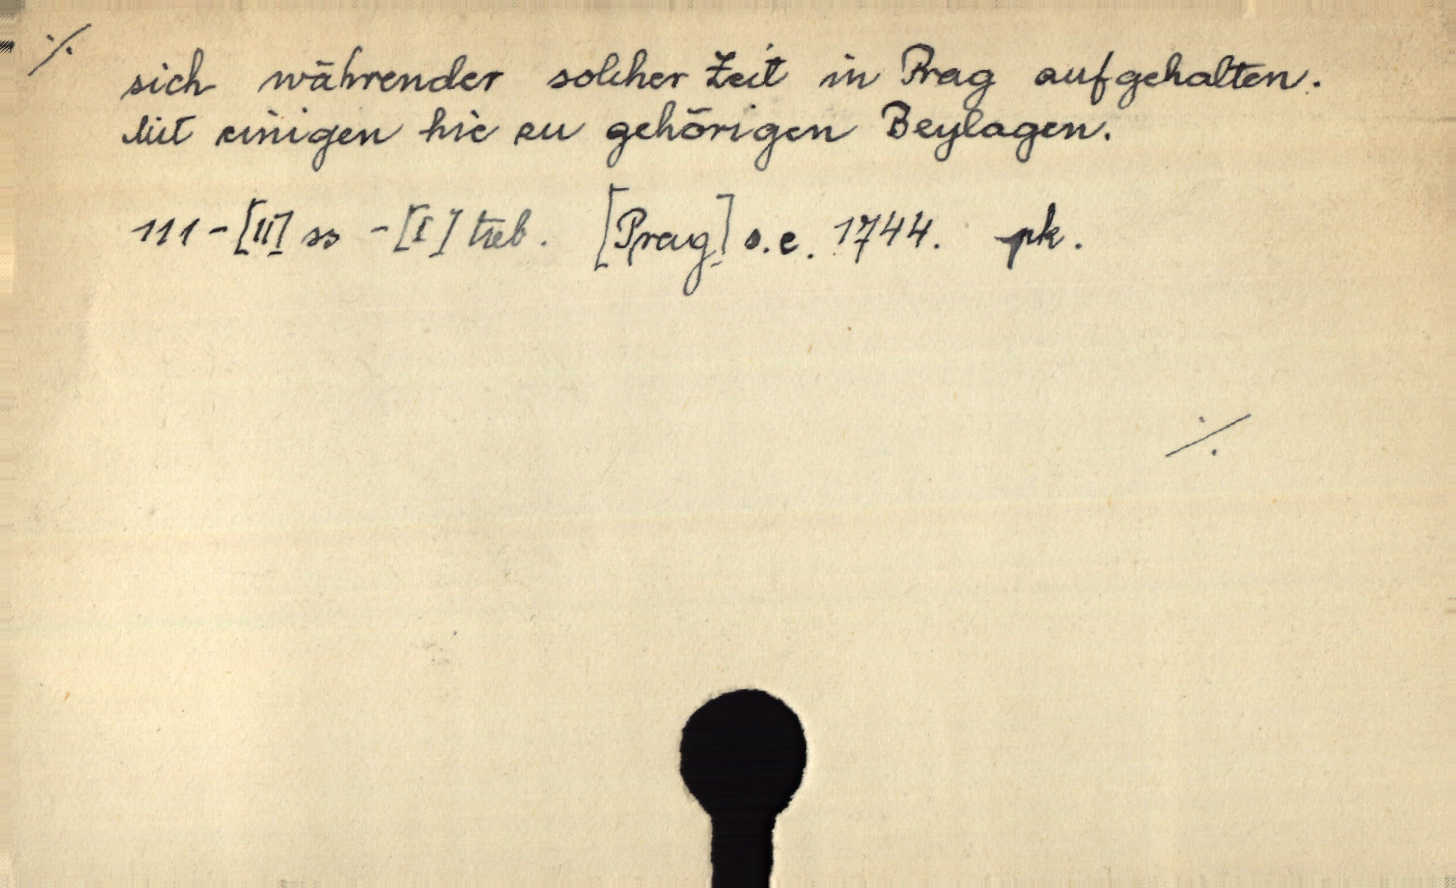 ./.
sich währender solcher Zeit in Prag aufgehalten.
Mit einigen hie zu gehörigen Beylagen.
111-[II] ss -[I] tab. [Prag] s.e. 1744. pk.
./.